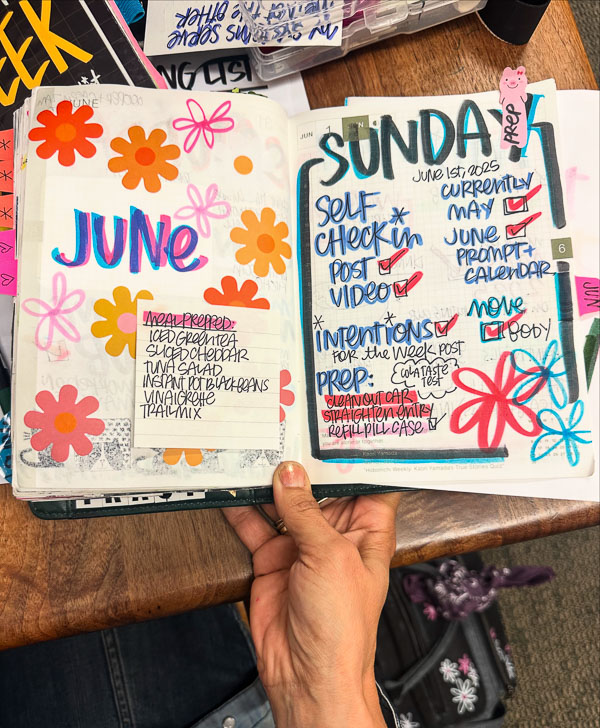 WEEK
MY SYSTEMS SERVE
THE OTHER
NG LIST
JUNE
JUNE
MEAL PREPPED:
ICED GREEN TEA
SLICED CHEDDAR
TUNA SALAD
INSTANT POT BLACK BEANS
VINAIGRETTE
TRAIL MIX
JUN 1
SUNDAY
PREP
JUNE 1ST, 2025
SELF
CHECK IN
POST
VIDEO
CURRENTLY
MAY
JUNE
PROMPT +
CALENDAR
6
JUN
INTENTIONS
FOR THE WEEK POST
MOVE
BODY
PREP:
COLA TASTE
TEST
CLEAN OUT CAR
STRAIGHTEN ENTRY
REFILL PILL CASE